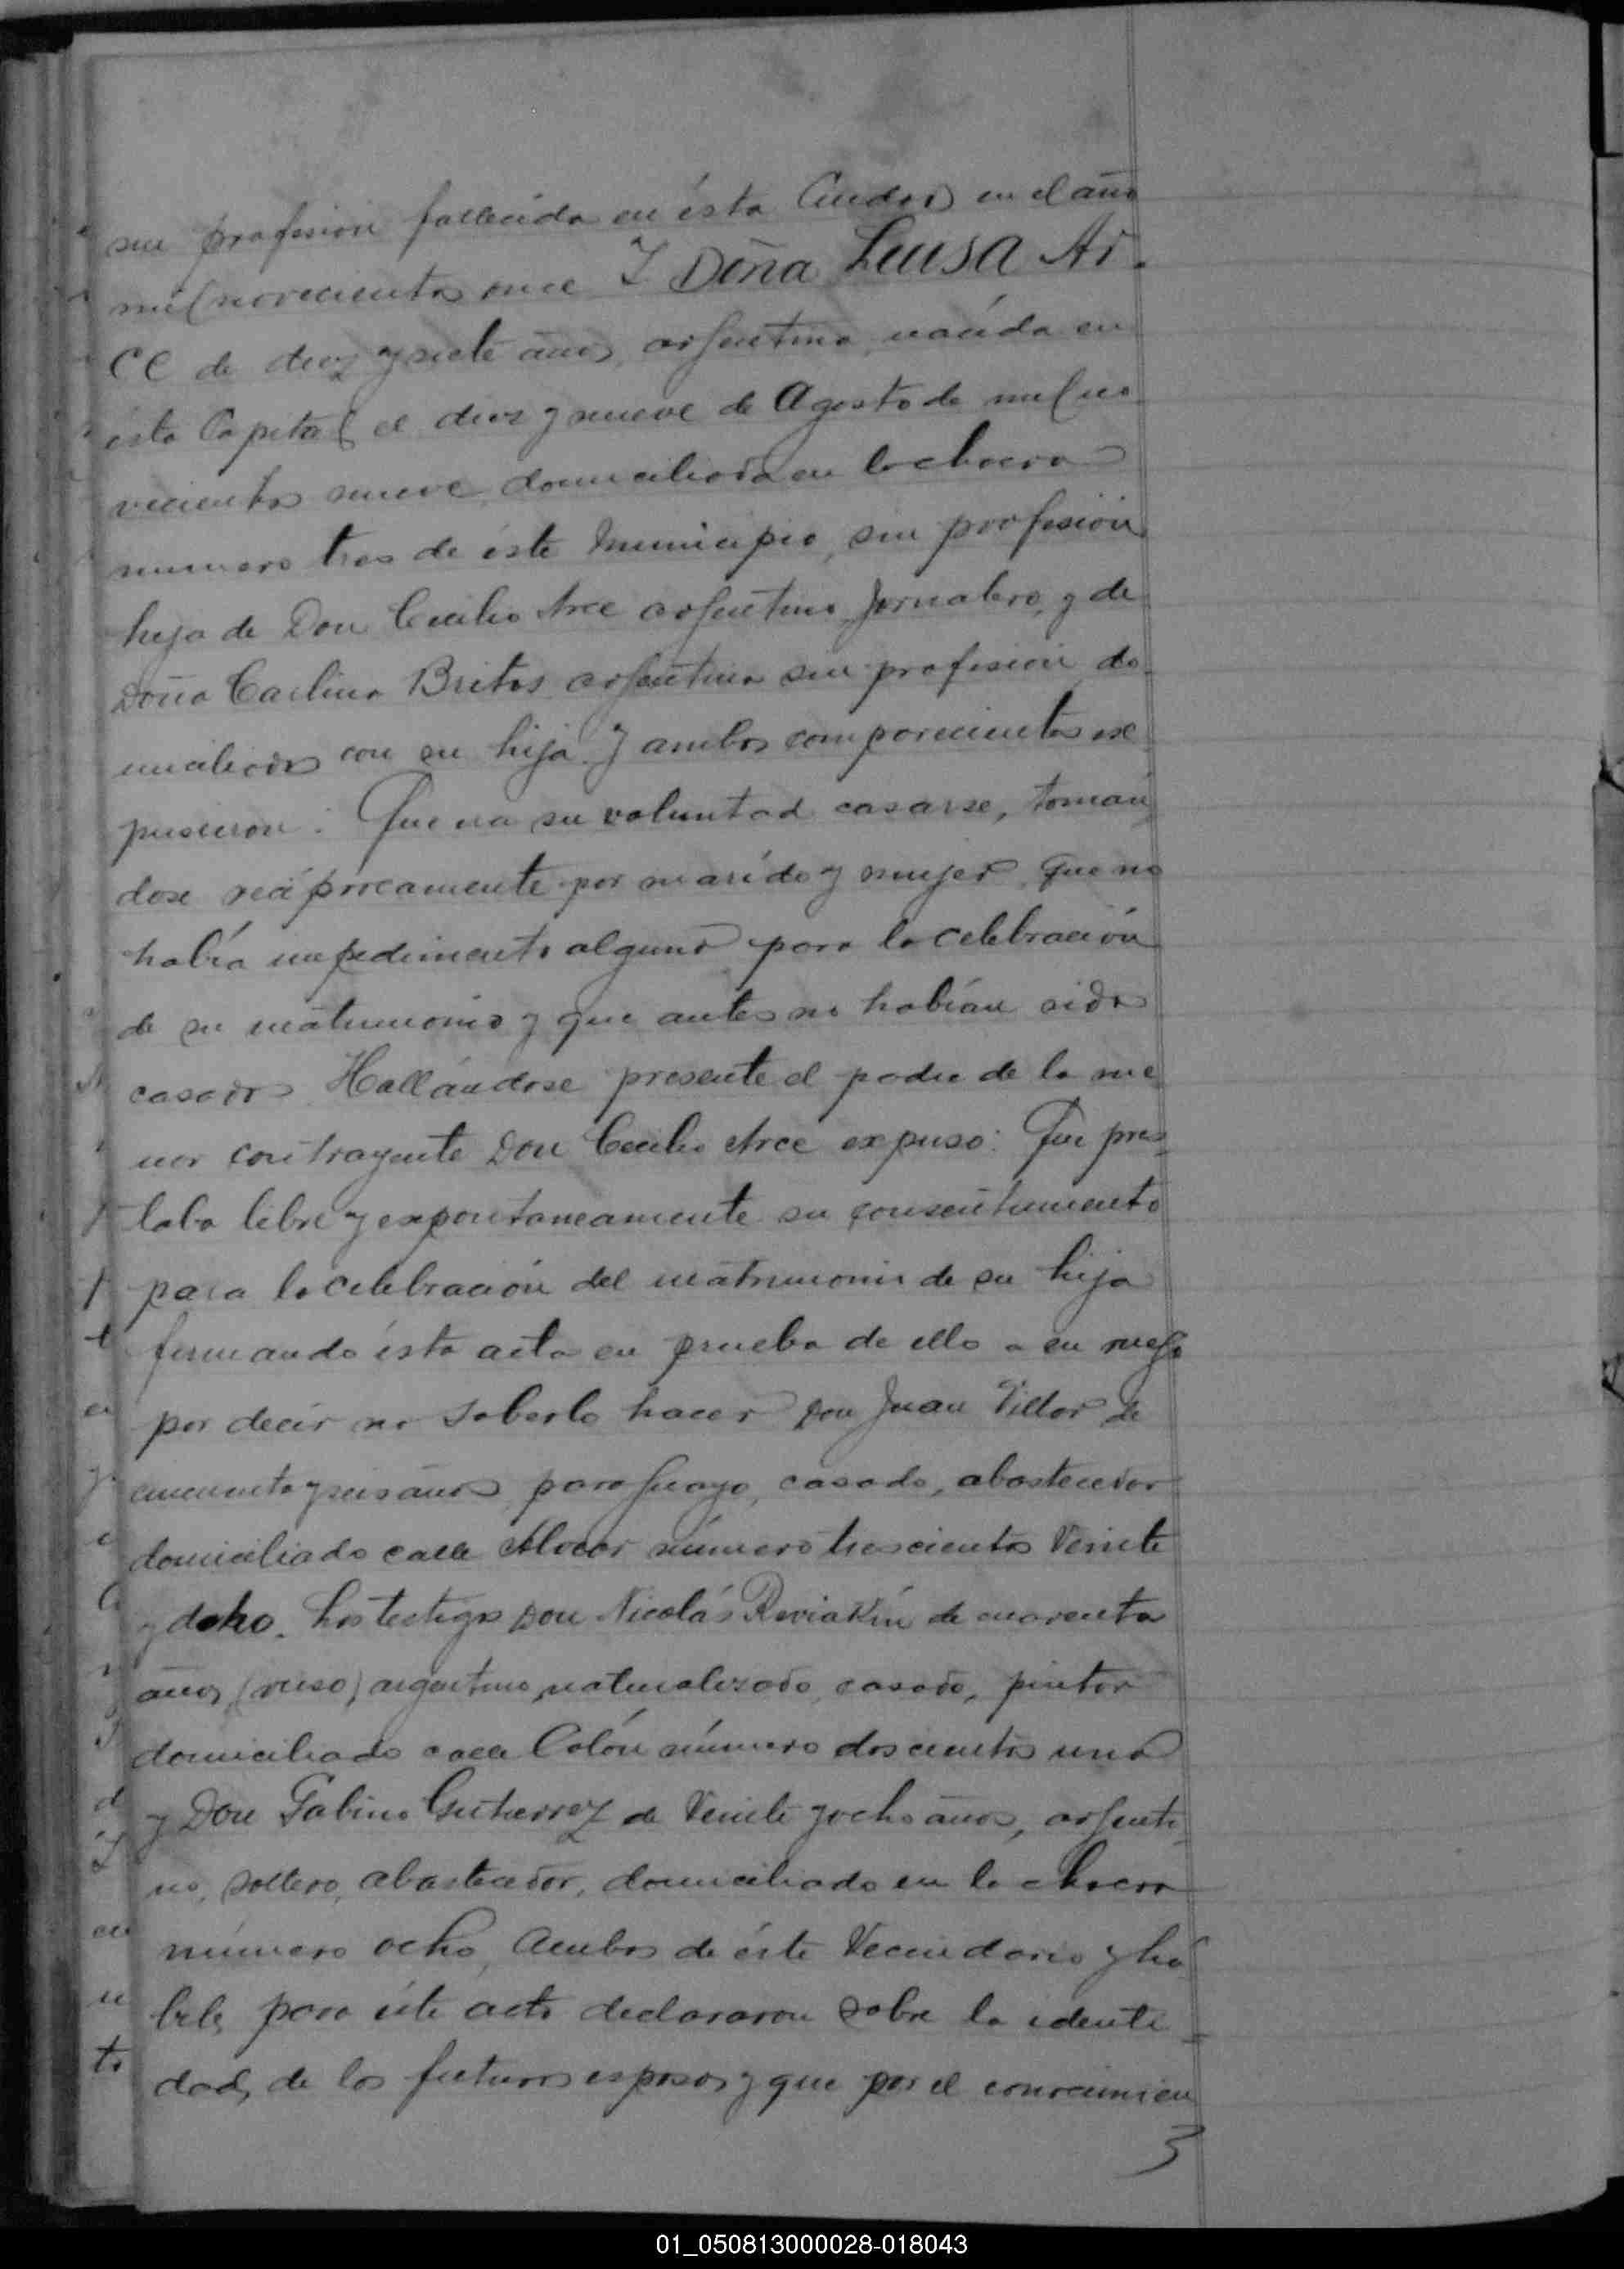 sin profesión fallecida en ésta Ciudad en el año
mil novecientos once Y Doña Luisa Ar-
ce de diez y siete años, argentina, nacida en
ésta Capital el diez y nueve de Agosto de mil no
vecientos nueve domiciliada en la chacra
numero tres de éste Municipio, sin profesión
hija de Don Cecilio Arce argentino, jornalero, y de
Doña Carlina Britos argentina sin profesión do-
miciliados con su hija. Y ambos comparecientes ex
pusieron: Que era su voluntad casarse, tomán
dose recíprocamente por marido y mujer, que no
había impedimento alguno para la celebración
de su matrimonio y que antes no habían sido
casados. Hallándose presente el padre de la me
nor contrayente Don Cecilio Arce expuso: Que pres-
taba libre y expontaneamente su consentimiento
para la celebración del matrimonio de su hija
firmando ésta acta en prueba de ello a su ruego
por decir no saberlo hacer Don Juan Villar de
cincuenta y seis años, paraguayo, casado, abastecedor
domiciliado calle Alvear número trescientos Veinte
y ocho. Los testigos Don Nicolás Reviakin de cuarenta
años, (ruso) argentino naturalizado, casado, pintor
domiciliado calle Colón número doscientos uno
y Don Gabino Gutierrez de Veinte y ocho años, argenti-
no, soltero, abastecedor, domiciliado en la chacra
número ocho, Ambos de éste Vecindario y há
biles para éste acto declararon sobre la identi-
dad, de los futuros esposos y que por el conocimien
3
01_050813000028-018043